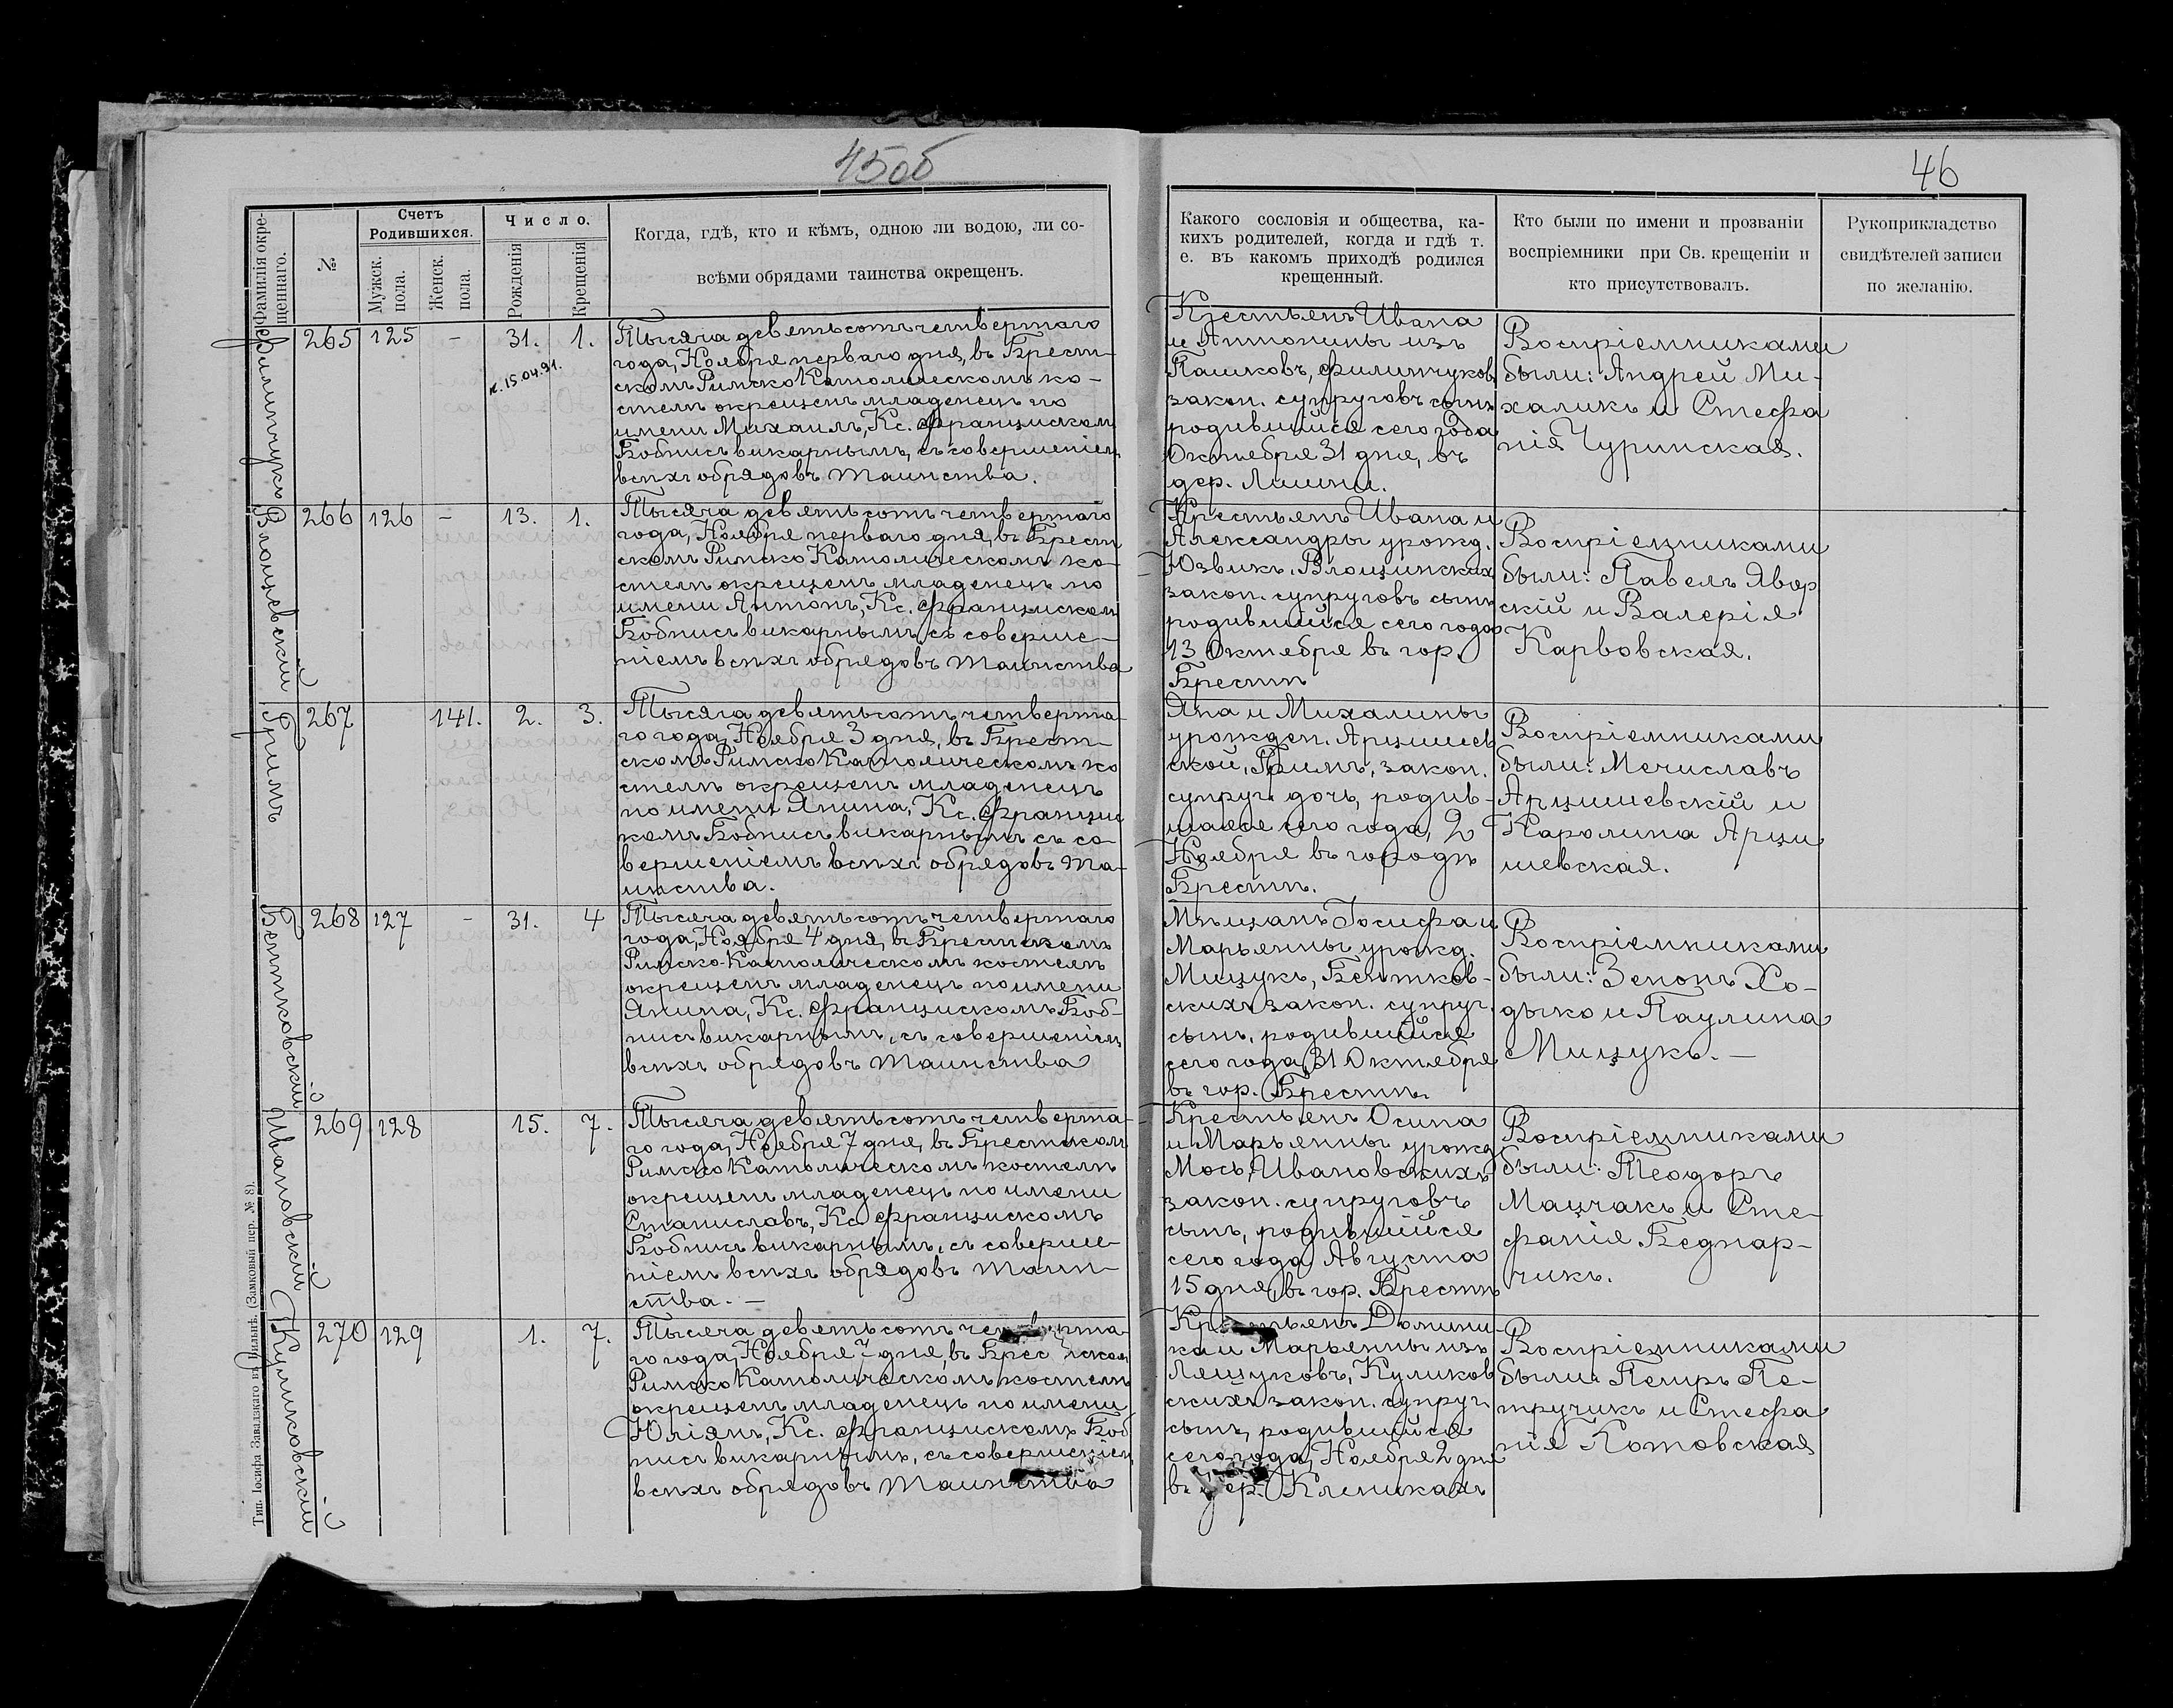 45об
46
Фамилія окре-
щеннаго.
№
Счетъ
Родившихся.
Мужск.
пола.
Женск.
пола.
Число.
Рожденія
Крещенія
Когда, гдѣ, кто и кѣмъ, одною ли водою, ли со-
всѣми обрядами таинства окрещенъ.
Какого сословія и общества, ка-
кихъ родителей, когда и гдѣ т.
е. въ какомъ приходѣ родился
крещенный.
Кто были по имени и прозванію
воспріемники при Св. крещеніи и
кто присутствовалъ.
Рукоприкладство
свидѣтелей записи
по желанію.
Филипчукъ
265 125 - 31. 1.
15.04.91.
Тысяча девятьсотъ четвертаго
года, Ноября перваго дня, въ Брест-
скомъ Римско Католическомъ ко-
стелѣ окрещенъ младенецъ по
имени Михаилъ, Кс. Францискомъ
Бобнисъ викарнымъ, съ совершеніем
всѣхъ обрядовъ Таинства.
Крестьянъ Ивана
и Антонины изъ
Пашковъ, Филипчуковъ
закон. супруговъ сынъ
родившійся сего года
Октября 31 дня, въ
дер.
Воспріемниками
были: Андрей Ми-
халикъ и Стефа
нія Чуринская.
Влощевский
266 126 - 13. 1.
Тысяча девятьсотъ четвертаго
года, Ноября перваго дня, въ Брест
скомъ Римско Католическомъ ко-
стелѣ окрещенъ младенецъ по
имени Антонъ, Кс. Францискомъ
Бобнисъ викарнымъ, съ соверше-
ніемъ всѣхъ обрядовъ Таинства
Крестьянъ Ивана и
Александры урожд.
Юзвикъ, Влощинскихъ
закон. супруговъ сынъ
родившійся сего года
13 Октября въ гор.
Брестѣ
Воспріемниками
были: Павелъ Явор
скій и Валерія
Карвовская.
Гримъ
267 141. 2. 3.
Тысяча девятьсотъ четверта-
го года, Ноября 3 дня, въ Брест-
скомъ Римско Католическомъ ко
стелѣ окрещенъ младенецъ
по имени Янина, Кс. Францис
комъ Бобнисъ викарнымъ съ со-
вершеніемъ всѣхъ обрядовъ Та-
инства.
Яна и Михалины
урожден. Арцишев
ской, Гримъ, закон.
супруг. дочь, родив-
шаяся сего года, 2
Ноября въ городѣ
Брестѣ.
Воспріемниками
были: Мечиславъ
Арцишевскій и
Каролина Арци
шевская.
Бентковский
268 127 - 31. 4
Тысяча девятьсотъ четвертаго
года, Ноября 4 дня, въ Брестскомъ
Римско-Католическомъ костелѣ
окрещенъ младенецъ по имени
Янина, Кс. Францискомъ Боб-
нисъ викарнымъ, съ совершеніем
всѣхъ обрядовъ Таинства
Мѣщанъ Іосифа и
Марьянны урожд.
Мищукъ, Бентков-
скихъ закон. супруг.
сынъ, родившійся
сего года 31 Октября
въ гор. Брестѣ.
Воспріемниками
были: Зенонъ Хо-
дыко и Паулина
Мищукъ. -
Ивановский
269 128 15. 7.
Тысяча девятьсотъ четверта-
го года, Ноября 7 дня, въ Брестскомъ
Римско Католическомъ костелѣ
окрещенъ младенецъ по имени
Станиславъ, Кс. Францискомъ
Бобнисъ викарнымъ, съ соверше-
ніемъ всѣхъ обрядовъ Таин-
ства. -
Крестьянъ Осипа
и Марьянны урожд
Мось, Ивановскихъ
закон. супруговъ
сынъ, родившійся
сего года Августа
15 дня, въ гор. Брестѣ
Воспріемниками
были: Теодоръ
Мацчакъ и Сте-
фанія Беднар-
чикъ.
Куликовский
270 129 1. 7.
Тысяча девятьсотъ четверта-
го года, Ноября 7 дня, въ Брестском
Римско Католическомъ костелѣ
окрещенъ младенецъ по имени
Юліянъ, Кс. Францискомъ Боб
нисъ викарнымъ, съ совершеніем
всѣхъ обрядовъ Таинства
Крестьянъ Домини
ка и Марьянны изъ
Лещуковъ, Куликов
скихъ закон. супруг
сынъ, родившійся
сего года, Ноября 2 дня
въ дер. Клепикахъ
Воспріемниками
были: Петръ Пе-
тручикъ и Стефа
нія Котовская
Тип. Іосифа Завадзкаго въ Вильнѣ, (Замковый пер. № 8).